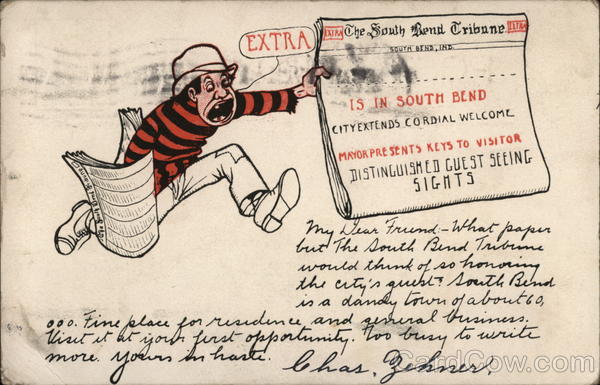 EXTRA
EXTRA The South Bend Tribune EXTRA
SOUTH BEND, IND.
IS IN SOUTH BEND
CITY EXTENDS CORDIAL WELCOME
MAYOR PRESENTS KEYS TO VISITOR
DISTINGUISHED GUEST SEEING
SIGHTS
The South Bend Tribune
My Dear Friend:- What paper
but The South Bend Tribune
would think of so honoring
the city's guest? South Bend
is a dandy town of about 60,
000. Fine place for residence and general business.
Visit it at your first opportunity. Too busy to write
more. Yours in haste.
Chas. Zehner.
CardCow.com